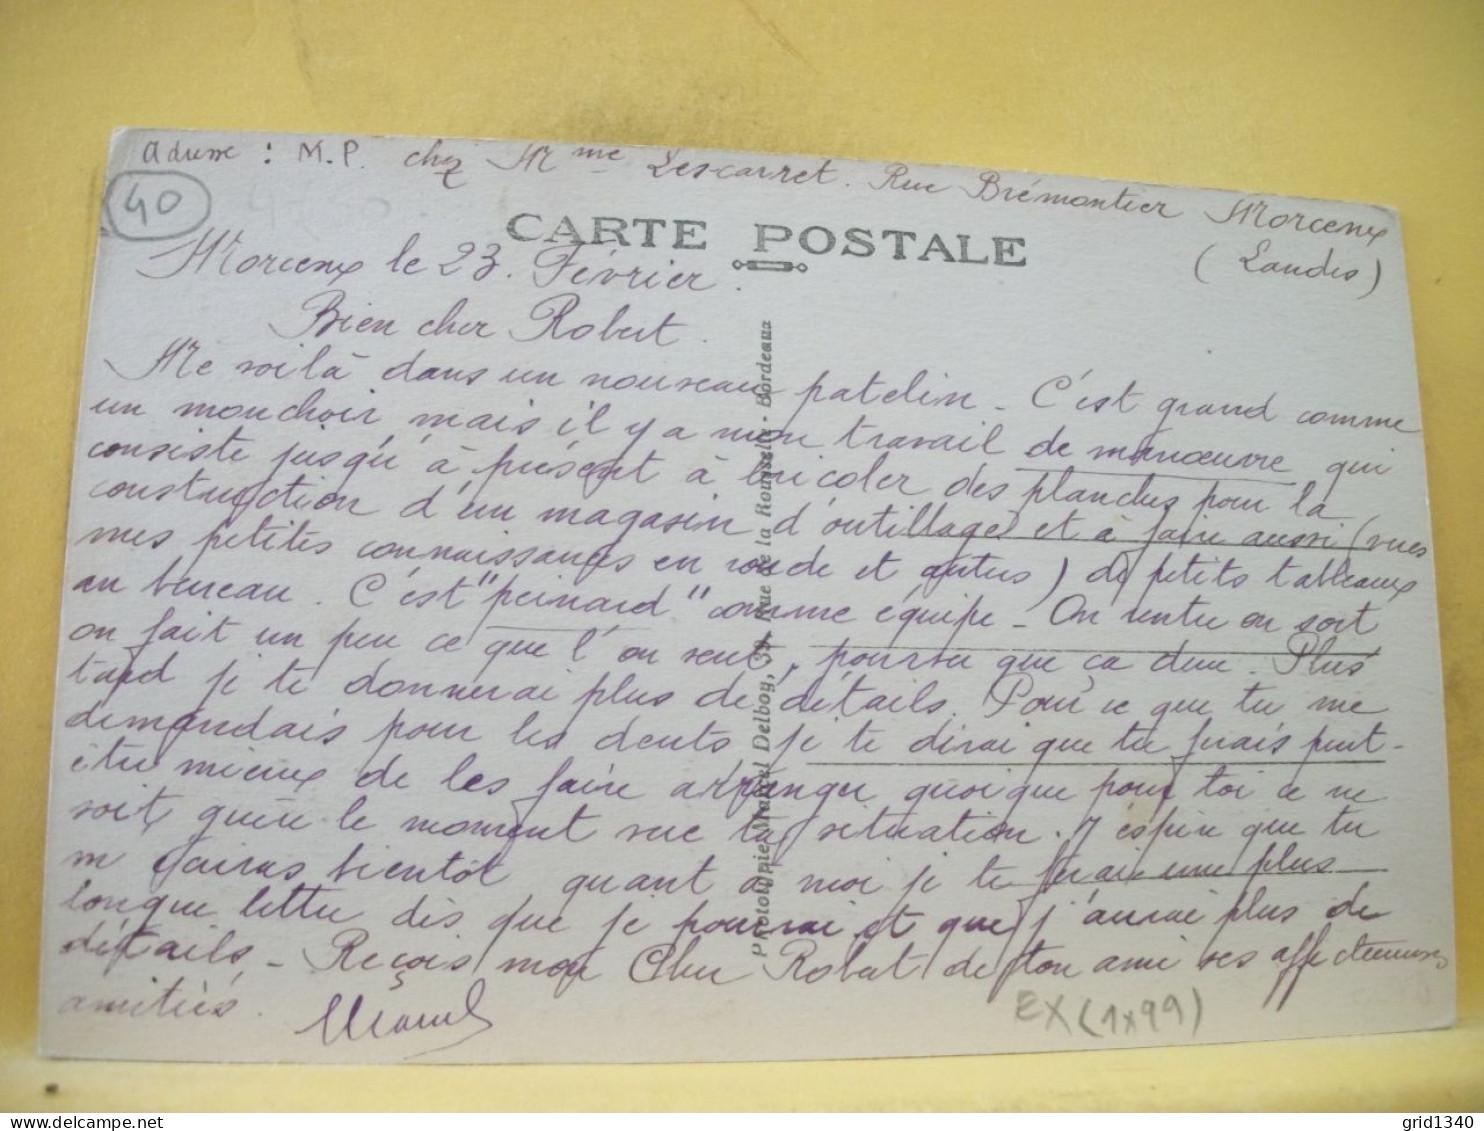 Adresse : M.P. chez Mme Lescarret. Rue Brémontier Morcenx
(Landes)
40
CARTE POSTALE
Morcenx le 23. Février.
Bien cher Robert.
Me voilà dans un nouveau patelin - C'est grand comme
un mouchoir mais il y a mon travail de manœuvre qui
consiste jusqu'à présent à bricoler des planches pour la
construction d'un magasin d'outillage et à faire aussi (vues
mes petites connaissances en ronde et autres) de petits tableaux
au bureau. C'est "peinard" comme équipe - On rentre on sort
on fait un peu ce que l'on veut, pourvu que ça dure. Plus
tard je te donnerai plus de détails. Pour ce que tu me
demandais pour les dents je te dirai que tu ferais peut-
être mieux de les faire arranger quoique pour toi ce ne
soit guère le moment vue ta situation. J'espère que tu
m'écriras bientôt quant à moi je te ferai une plus
longue lettre dès que je pourrai et que j'aurai plus de
détails. - Reçois mon Cher Robert de ton ami ses affectueuses
amitiés.
Marcel
Phototypie Marcel Delboy, 37, Rue de la Rousselle - Bordeaux
EX (1x99)
grid1340